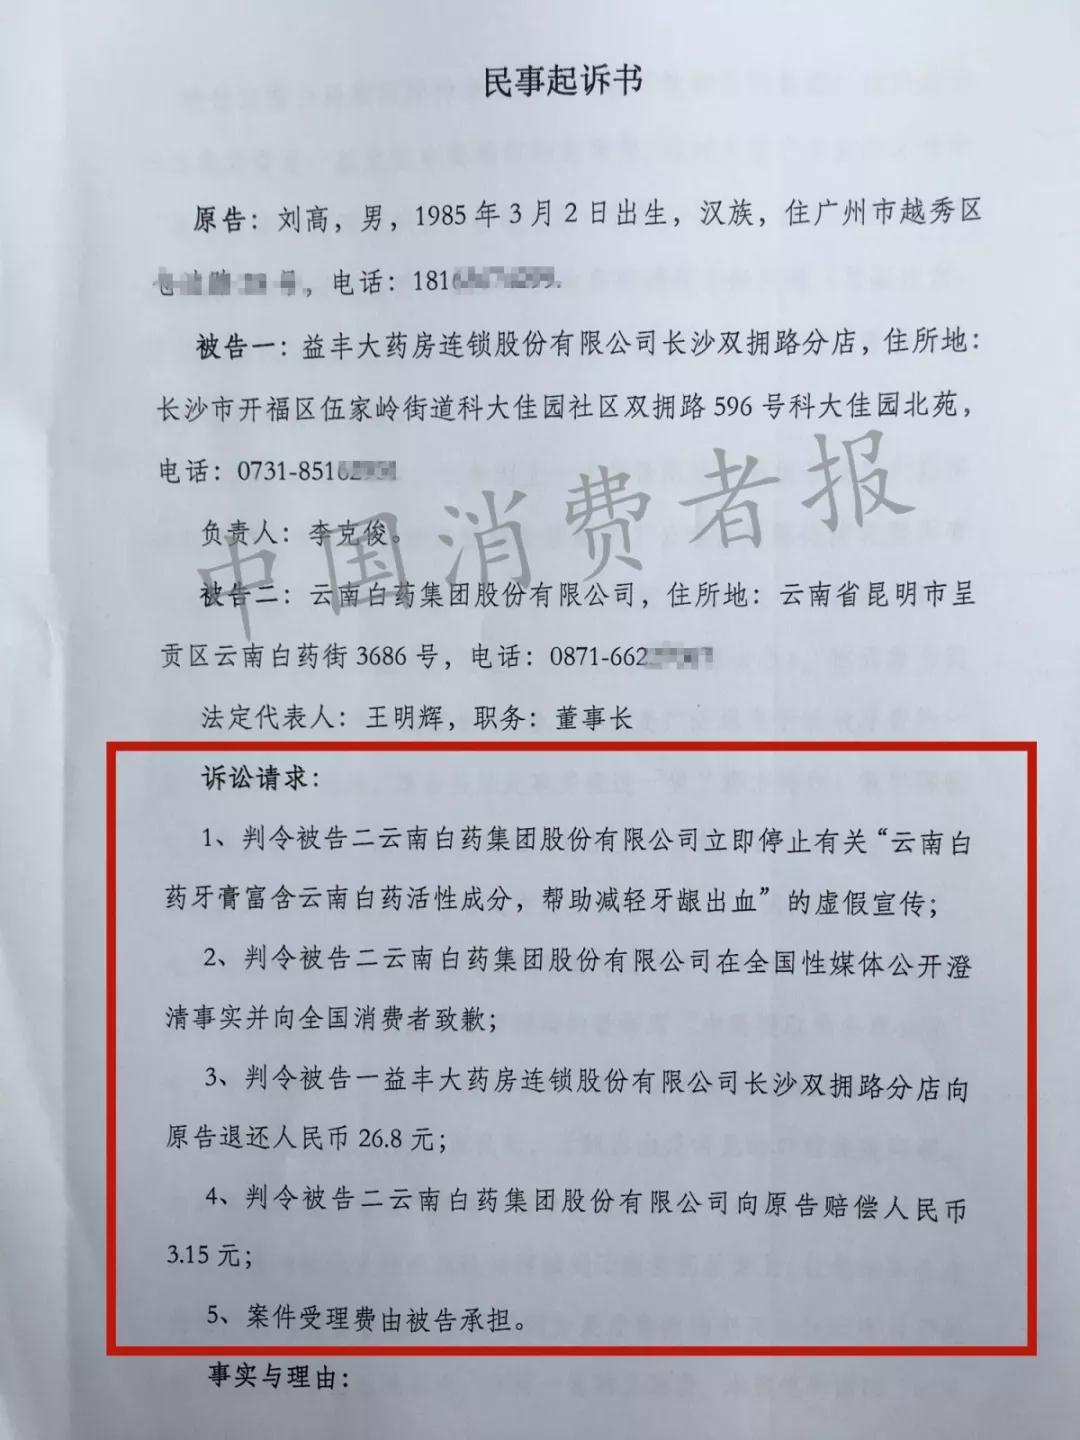 民事起诉书
原告：刘高，男，1985年3月2日出生，汉族，住广州市越秀区
号，电话：181
被告一：益丰大药房连锁股份有限公司长沙双拥路分店，住所地：
长沙市开福区伍家岭街道科大佳园社区双拥路596号科大佳园北苑，
电话：0731-8516
中国消费者报
负责人：李克俊。
被告二：云南白药集团股份有限公司，住所地：云南省昆明市呈
贡区云南白药街3686号，电话：0871-662
法定代表人：王明辉，职务：董事长
诉讼请求：
1、判令被告二云南白药集团股份有限公司立即停止有关“云南白
药牙膏富含云南白药活性成分，帮助减轻牙龈出血”的虚假宣传；
2、判令被告二云南白药集团股份有限公司在全国性媒体公开澄
清事实并向全国消费者致歉；
3、判令被告一益丰大药房连锁股份有限公司长沙双拥路分店向
原告退还人民币26.8元；
4、判令被告二云南白药集团股份有限公司向原告赔偿人民币
3.15元；
5、案件受理费由被告承担。
事实与理由：